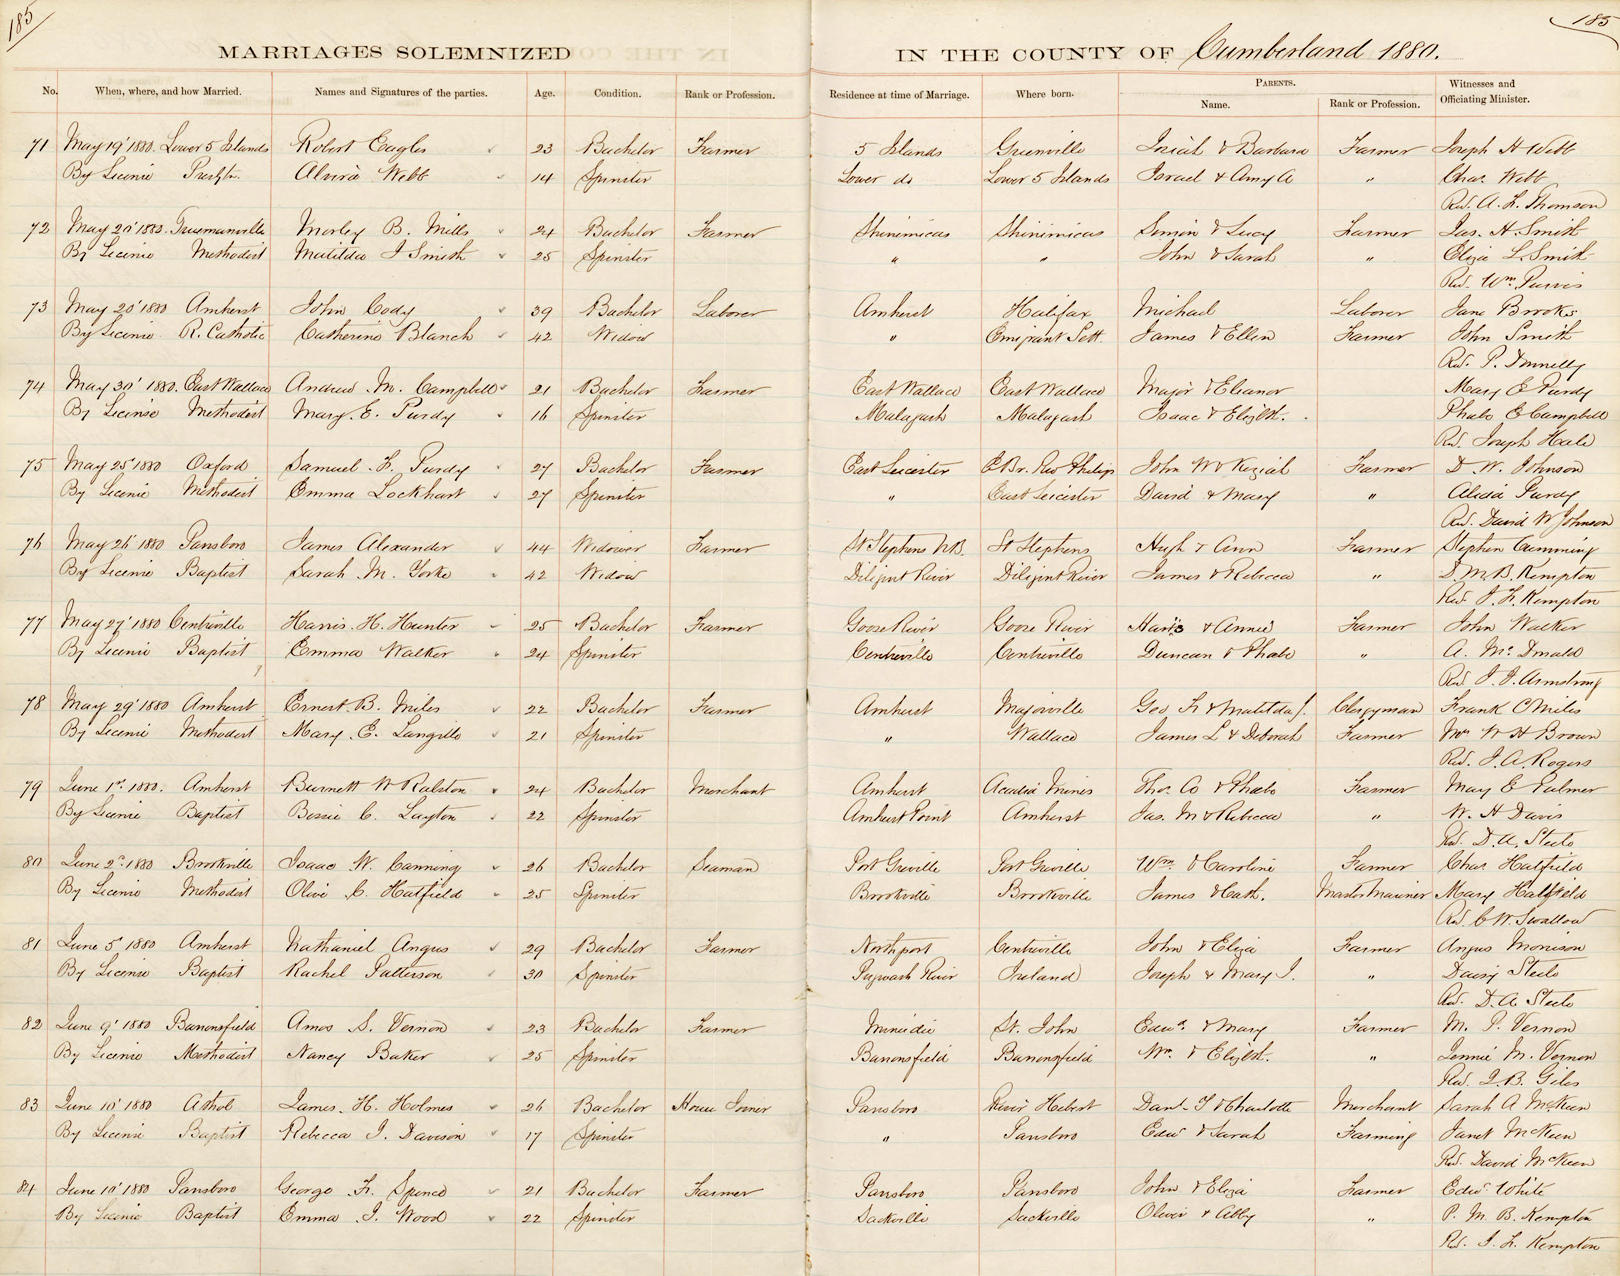 185
185
MARRIAGES SOLEMNIZED IN THE COUNTY OF Cumberland 1880.
No. When, where, and how Married. Names and Signatures of the parties. Age. Condition. Rank or Profession. Residence at time of Marriage. Where born. PARENTS. Name. Rank or Profession. Witnesses and Officiating Minister.
71 May 19' 1880. Lower 5 Islands Robert Eagles 23 Bachelor Farmer 5 Islands Grenville & Barbara Farmer Joseph H Webb
By Licence Presbytn. Alvira Webb 14 Spinster Lower do Lower 5 Islands Israel & Amy A " Chas. Webb
Rev. A. L. Thomson
72 May 20' 1880. Truemanville Morley B. Mills 24 Bachelor Farmer Shinimicas Shinimicas Simon & Lucy Farmer Jas. H. Smith
By Licence Methodist Matilda J Smith 25 Spinster " " John & Sarah " Eliza L. Smith
Rev. Wm. Purvis
73 May 20' 1880 Amherst John Cody 39 Bachelor Laborer Amherst Halifax Michael Laborer Jane Brooks
By Licence R. Catholic Catherine Blanch 42 Widow " Emigrant Sett. James & Ellen Farmer John Smith
Rev. P. Dunnelly
74 May 30' 1880. East Wallace Andrew M. Campbell 21 Bachelor Farmer East Wallace East Wallace Major & Eleanor Mary E Purdy
By Licence Methodist Mary. E. Purdy 16 Spinster Malagash Malagash Isaac & Elizbth. Phebe E Campbell
Rev. Joseph Hale
75 May 25' 1880 Oxford Samuel F. Purdy 27 Bachelor Farmer East Leicester John W & Keziah Farmer D. W. Johnson
By Licence Methodist Emma Lockhart 27 Spinster " East Leicester David & Mary " Alicia Purdy
Rev. David W Johnson
76 May 26' 1880 Parrsboro James Alexander 44 Widower Farmer St Stephens N.B. St Stephens Hugh & Ann Farmer Stephen Cumming
By Licence Baptist Sarah M. Yorke 42 Widow Diligent River Diligent River James & Rebecca " S. M. B. Kempton
Rev. J. F. Kempton
77 May 27' 1880 Centreville Harris. H. Hunter 25 Bachelor Farmer Goose River Goose River Harris & Annie Farmer John Walker
By Licence Baptist Emma Walker 24 Spinster Centreville Centreville Duncan & Phebe " A. McDonald
Rev. J. J. Armstrong
78 May 29' 1880 Amherst Ernest B. Miles 22 Bachelor Farmer Amherst Majorville Geo F. & Matilda J. Clergyman Frank C Miles
By Licence Methodist Mary. E. Langille 21 Spinster " Wallace James L & Deborah Farmer Mrs W H Brown
Rev. J. A. Rogers
79 June 1st. 1880. Amherst Burnett W Ralston 24 Bachelor Merchant Amherst Acadia Mines Thos. Co & Phebe Farmer May E Palmer
By Licence Baptist Bessie C. Layton 22 Spinster Amherst Point Amherst Jas. M & Rebecca " W. H Davis
Rev. D. A. Steele
80 June 2d. 1880 Brookville Isaac W. Canning 26 Bachelor Seaman Port Greville Port Greville Wm. & Caroline Farmer Chas Hatfield
By Licence Methodist Olive C. Hatfield 25 Spinster Brookville Brookville James & Cath. Master Mariner Mary Hatfield
Rev. C. W. Swallow
81 June 5' 1880 Amherst Nathaniel Angus 29 Bachelor Farmer Northport Centreville John & Eliza Farmer Angus Morrison
By Licence Baptist Rachel Patterson 30 Spinster Pugwash River Ireland Joseph & Mary J. " Daisy Steele
Rev. D. A. Steele
82 June 9' 1880 Barronsfield Amos S. Vernon 23 Bachelor Farmer Minudie St. John Edwd. & Mary Farmer M. P. Vernon
By Licence Methodist Nancy Baker 25 Spinster Barronsfield Barronsfield Wm. & Elizbth. " Jennie M. Vernon
Rev. J. B. Giles
83 June 10' 1880 Athol James. H. Holmes 26 Bachelor House Joiner Parrsboro River Hebert Danl. T & Charlotte Merchant Sarah A McKeen
By Licence Baptist Rebecca J. Davison 17 Spinster " Parrsboro Edw & Sarah Farming Janet McKeen
Rev. David McKeen
84 June 10' 1880 Parrsboro George F. Spence 21 Bachelor Farmer Parrsboro Parrsboro John & Eliza Farmer Edw. White
By Licence Baptist Emma J. Wood 22 Spinster Sackville Sackville Oliver & Abby " P. M. B. Kempton
Rev. J. F. Kempton